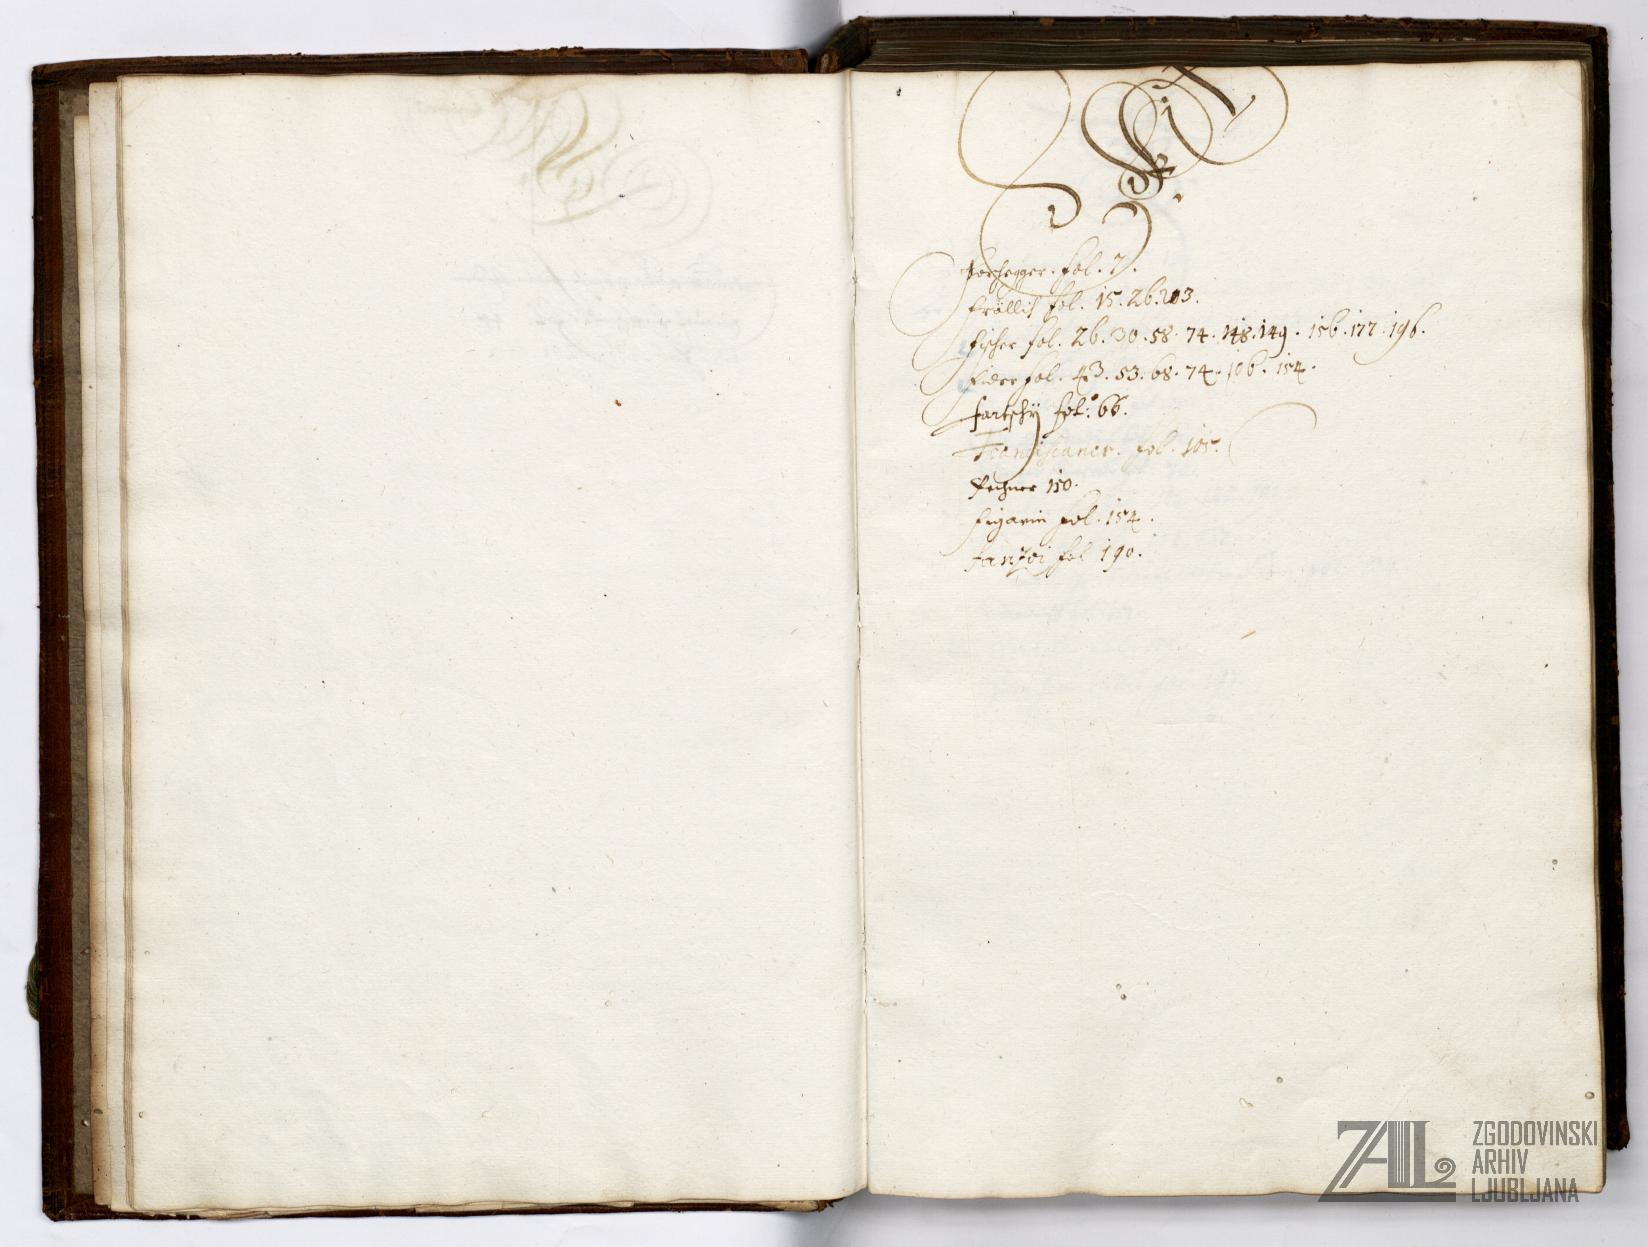 fol. 7.
Fröllich fol. 15. 26. 203.
Fischer fol. 26. 30. 58. 74. 148. 149. 156. 177. 196.
fol. 43. 53. 68. 74. 106. 154.
Fartschÿ fol: 66.
Franciscaner. fol. 105.
Fechner 150.
Figarin fol. 154.
Fanzoi fol 190.
ZAL ZGODOVINSKI
ARHIV
LJUBLJANA